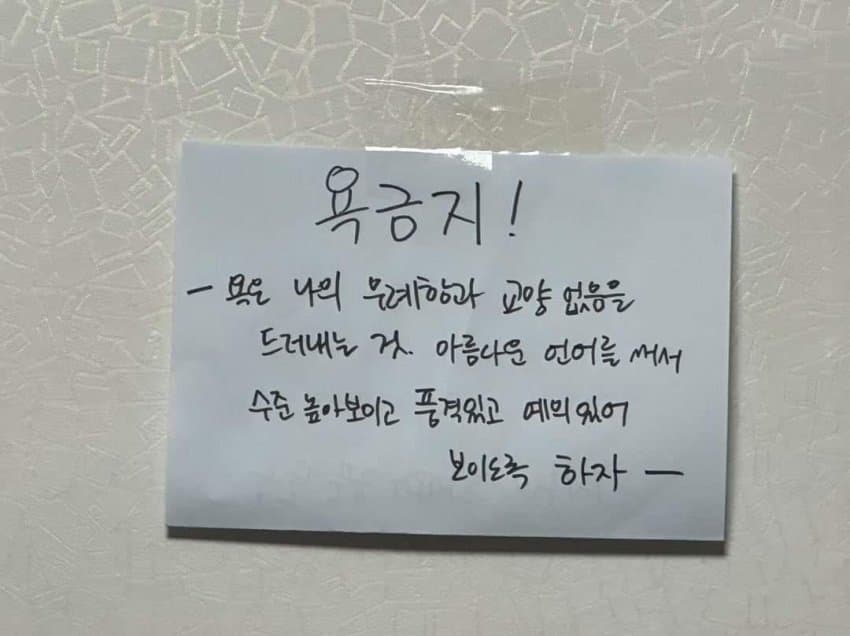 욕금지!
- 욕은 나의 무례함과 교양 없음을
드러내는 것. 아름다운 언어를 써서
수준 높아보이고 품격있고 예의있어
보이도록 하자 -